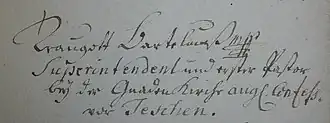 Traugott Bartelmuß mppria
Superintendent und erster Pastor
bey der Gnaden Kirche augs. Confess.
vor Teschen.